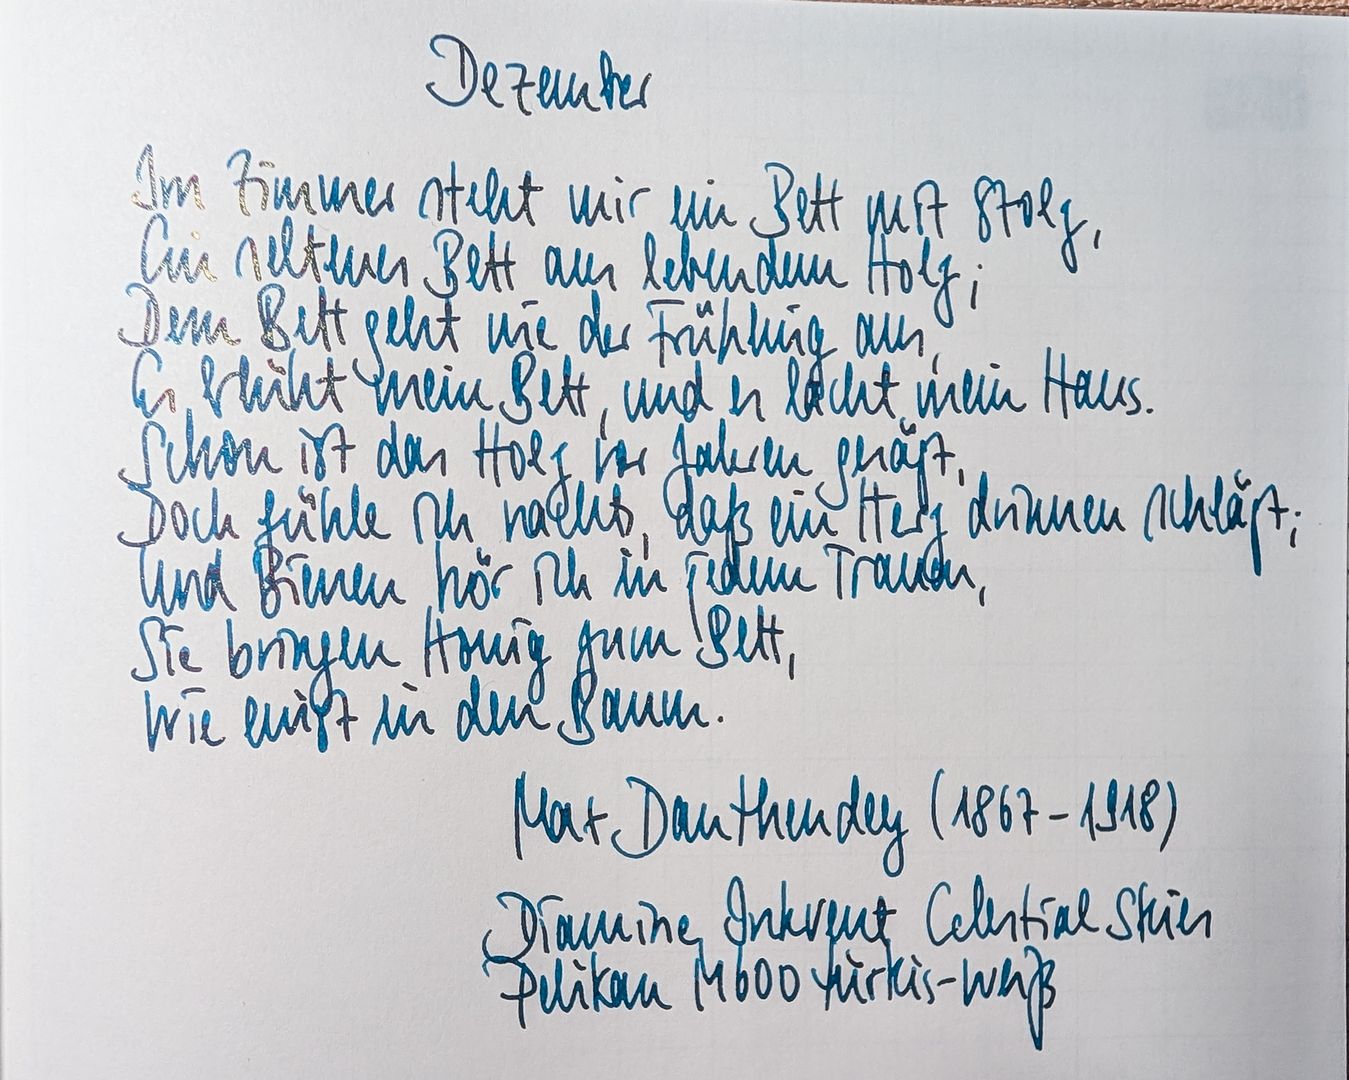 Dezember
Im Zimmer steht mir ein Bett mit Stolz,
Ein seltenes Bett aus lebendem Holz;
Dem Bett geht nie der Frühling aus,
Es blüht mein Bett, und es lacht mein Haus.
Schon ist das Holz vor Jahren gesägt,
Doch fühle ich nachts, daß ein Herz drinnen schlägt;
Und Bienen hör ich in jedem Traum,
Sie bringen Honig zum Bett,
Wie einst in den Baum.
Max Dauthendey (1867-1918)
Diamine Inkvent Celestial Skies
Pelikan M600 türkis-weiß